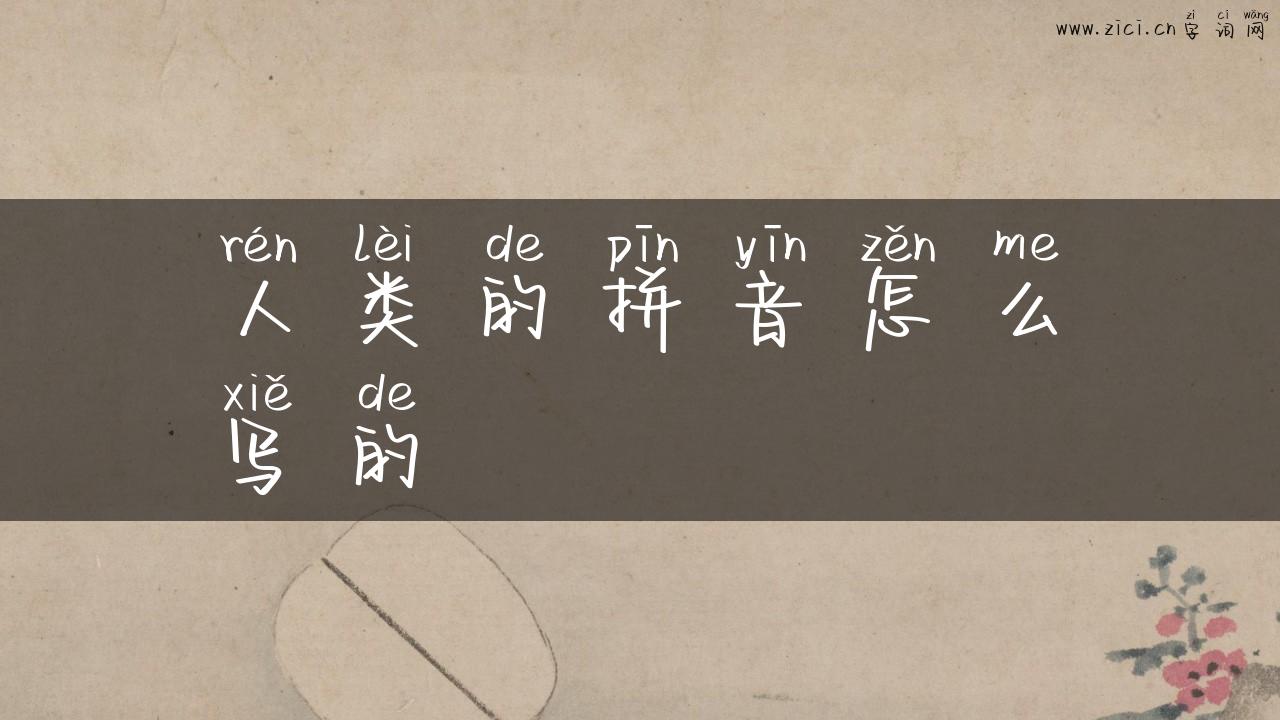 zì cí wǎng
www.zici.cn字词网
rén lèi de pīn yīn zěn me
人类的拼音怎么
xiě de
写的